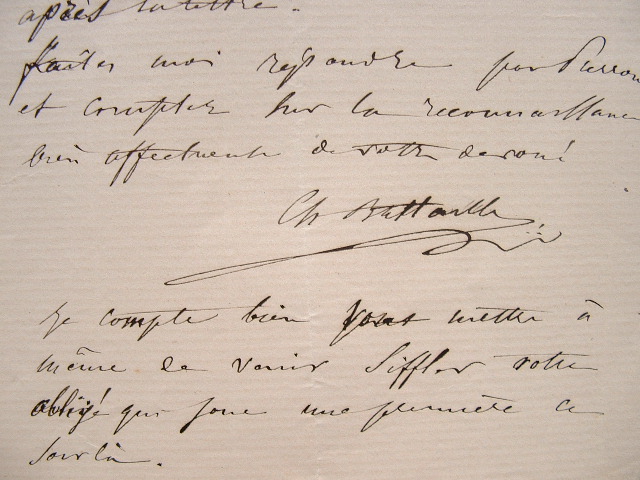 après la lettre.
faites moi répondre par Perron
et comptez sur la reconnaissance
bien affectueuse de votre dévoué
Ch Battaille
je compte bien vous mettre à
même de venir siffler votre
obligé qui joue une première ce
soir là.